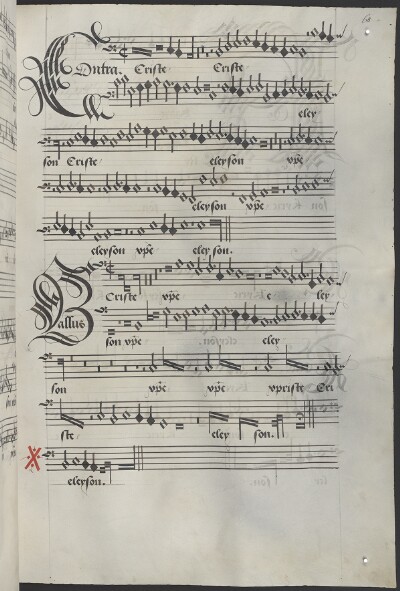 Contra. Criste Criste
eley
son Criste eleyson xp̄e
eleyson xp̄e
eleyson xp̄e eley son.
Criste xp̄e e ley
Bassus
son xp̄e eley
son xp̄e xp̄e xpriste Cri
ste eley son.
eleyson.